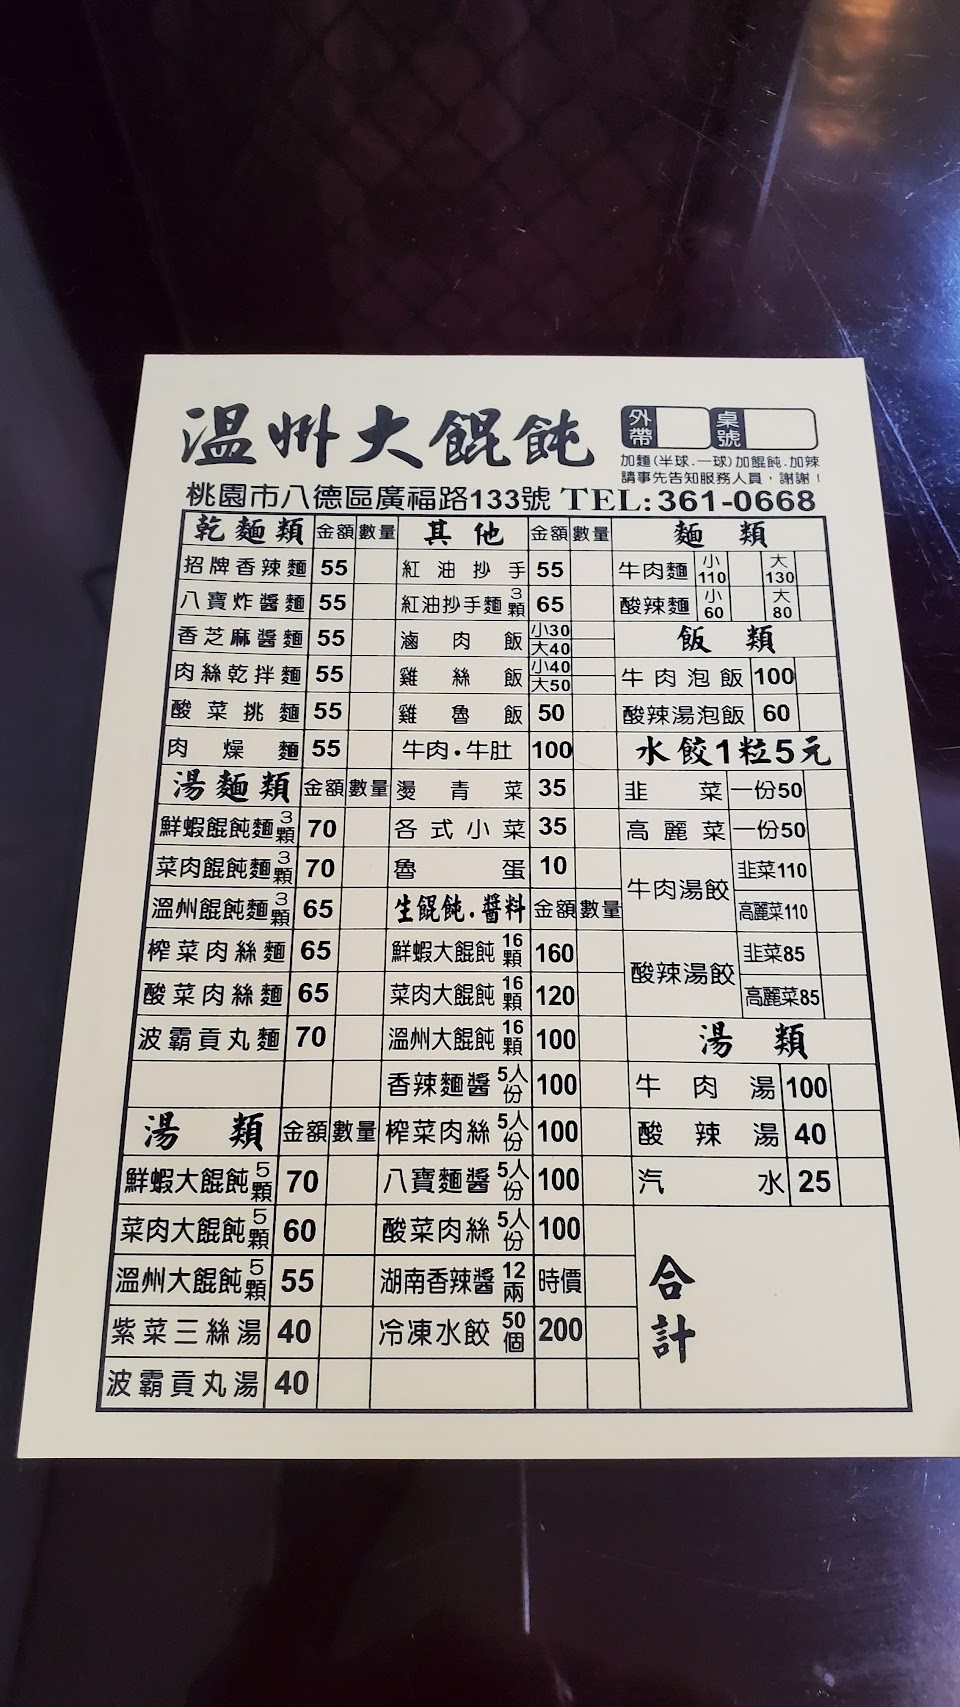 溫州大餛飩
外帶 桌號
加麵(半球.一球)加餛飩.加辣
請事先告知服務人員，謝謝！
桃園市八德區廣福路133號 TEL:361-0668
乾麵類 金額 數量
招牌香辣麵 55
八寶炸醬麵 55
香芝麻醬麵 55
肉絲乾拌麵 55
酸菜挑麵 55
肉燥麵 55
湯麵類 金額 數量
鮮蝦餛飩麵3顆 70
菜肉餛飩麵3顆 70
溫州餛飩麵3顆 65
榨菜肉絲麵 65
酸菜肉絲麵 65
波霸貢丸麵 70
湯類 金額 數量
鮮蝦大餛飩5顆 70
菜肉大餛飩5顆 60
溫州大餛飩5顆 55
紫菜三絲湯 40
波霸貢丸湯 40
其他 金額 數量
紅油抄手 55
紅油抄手麵3顆 65
滷肉飯 小30 大40
雞絲飯 小40 大50
雞魯飯 50
牛肉.牛肚 100
燙青菜 35
各式小菜 35
魯蛋 10
生餛飩.醬料 金額 數量
鮮蝦大餛飩16顆 160
菜肉大餛飩16顆 120
溫州大餛飩16顆 100
香辣麵醬5人份 100
榨菜肉絲5人份 100
八寶麵醬5人份 100
酸菜肉絲5人份 100
湖南香辣醬12兩 時價
冷凍水餃50個 200
麵類
牛肉麵 小110 大130
酸辣麵 小60 大80
飯類
牛肉泡飯 100
酸辣湯泡飯 60
水餃1粒5元
韭菜 一份50
高麗菜 一份50
牛肉湯餃 韭菜110
高麗菜110
酸辣湯餃 韭菜85
高麗菜85
湯類
牛肉湯 100
酸辣湯 40
汽水 25
合計